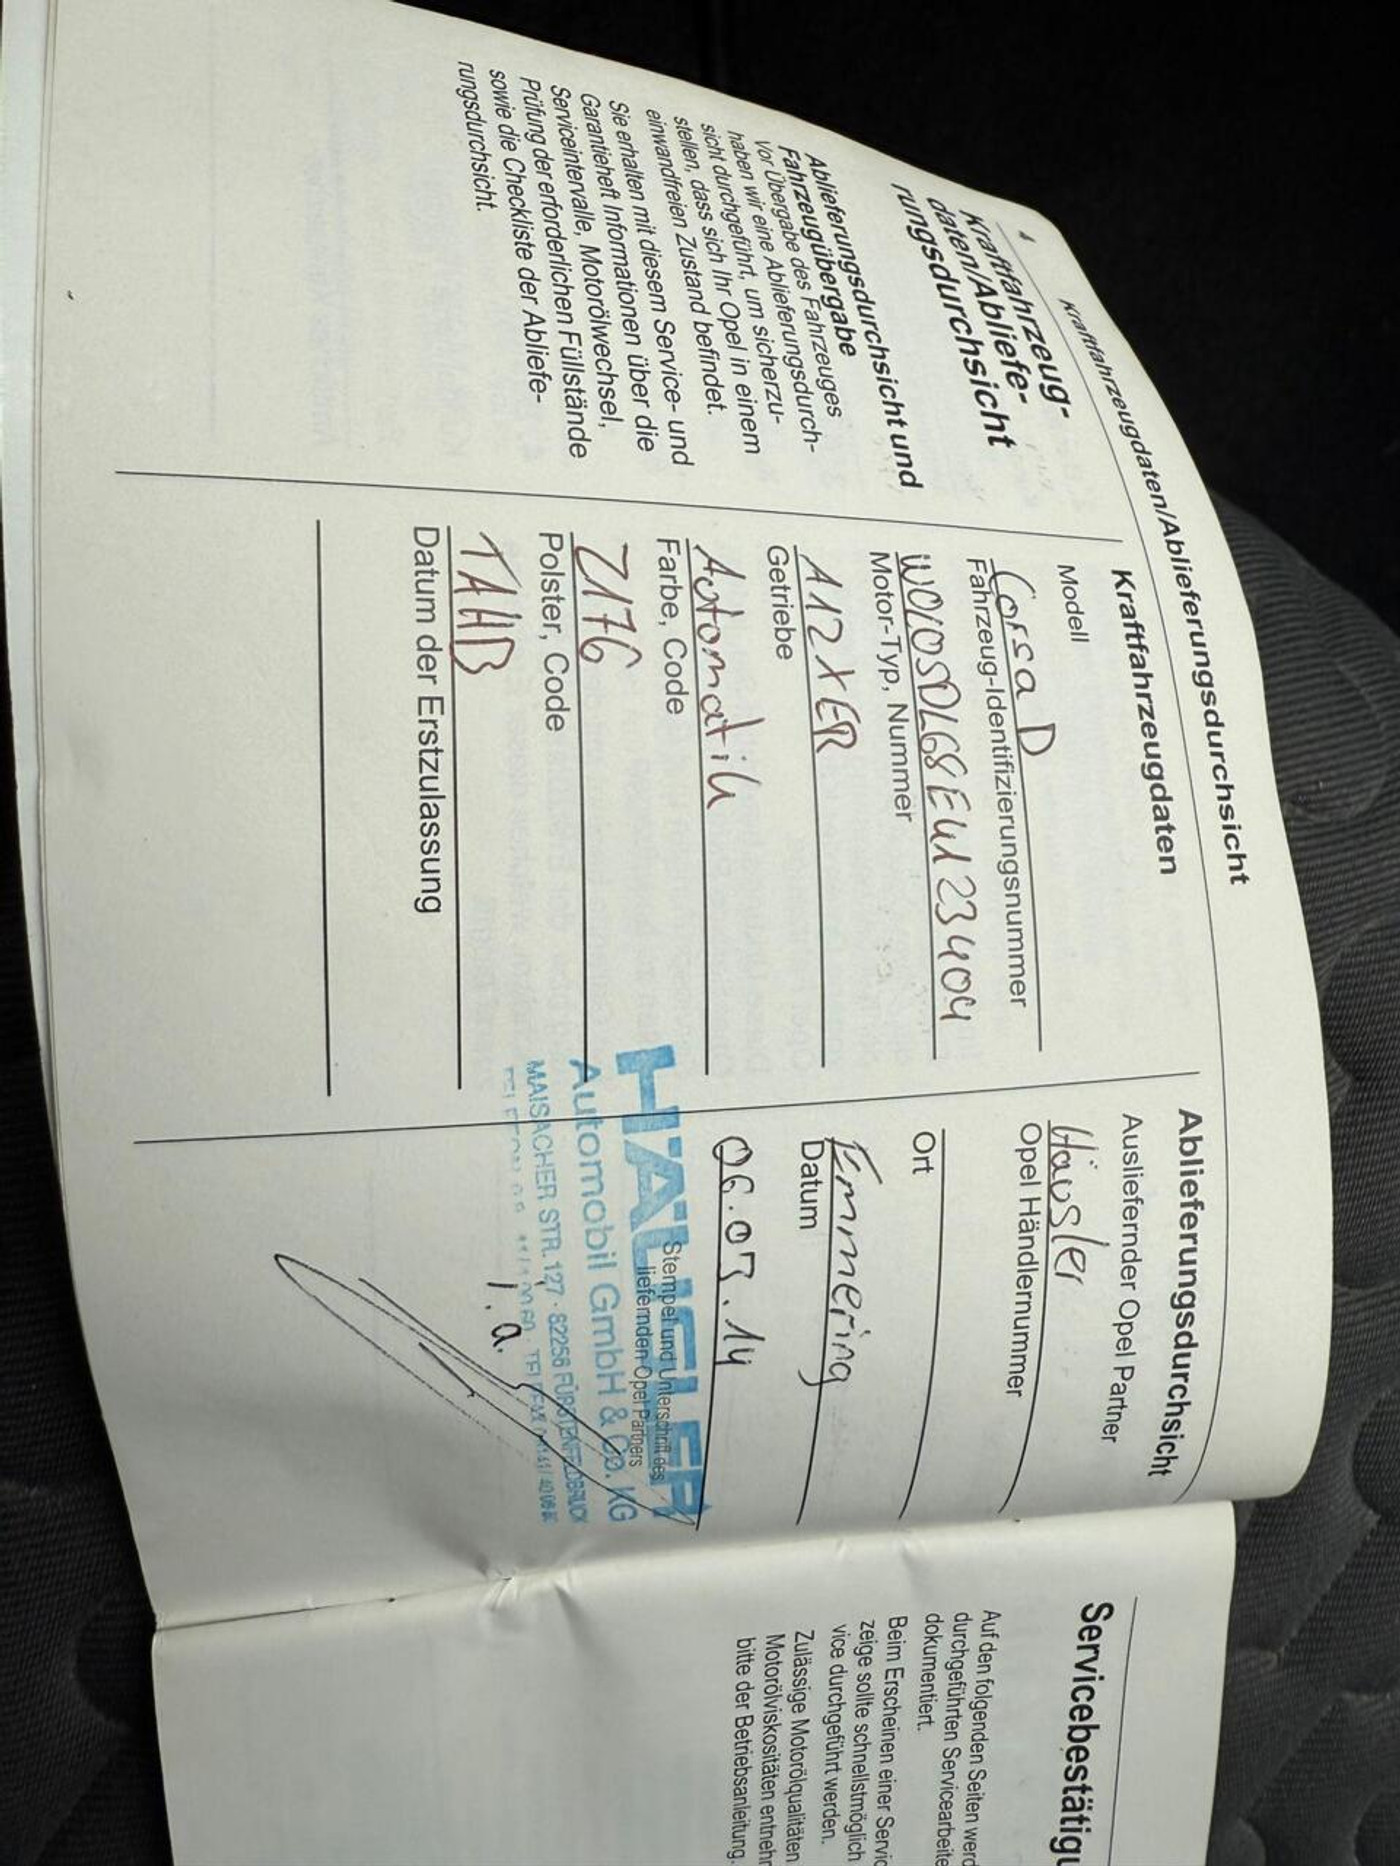 Kraftfahrzeugdaten/Ablieferungsdurchsicht
4
Kraftfahrzeug-
daten/Abliefe-
rungsdurchsicht
Ablieferungsdurchsicht und
Fahrzeugübergabe
Vor Übergabe des Fahrzeuges
haben wir eine Ablieferungsdurch-
sicht durchgeführt, um sicherzu-
stellen, dass sich Ihr Opel in einem
einwandfreien Zustand befindet.
Sie erhalten mit diesem Service- und
Garantieheft Informationen über die
Serviceintervalle, Motorölwechsel,
Prüfung der erforderlichen Füllstände
sowie die Checkliste der Abliefe-
rungsdurchsicht.
Kraftfahrzeugdaten
Modell
Corsa D
Fahrzeug-Identifizierungsnummer
W0L0SDL68E4123404
Motor-Typ, Nummer
A12XER
Getriebe
Automatik
Farbe, Code
Z176
Polster, Code
TAHB
Datum der Erstzulassung
Ablieferungsdurchsicht
Ausliefernder Opel Partner
Häusler
Opel Händlernummer
Ort
Emmering
Datum
06.03.14
Stempel und Unterschrift des
liefernden Opel Partners
HÄUSLER
Automobil GmbH & Co. KG
MAISACHER STR. 127 · 82256 FÜRSTENFELDBRUCK
i.a.
Servicebestätig
Auf den folgenden Seiten werd
durchgeführten Servicearbeite
dokumentiert.
Beim Erscheinen einer Servic
zeige sollte schnellstmöglich
vice durchgeführt werden.
Zulässige Motorölqualitäten
Motorölviskositäten entnehm
bitte der Betriebsanleitung.